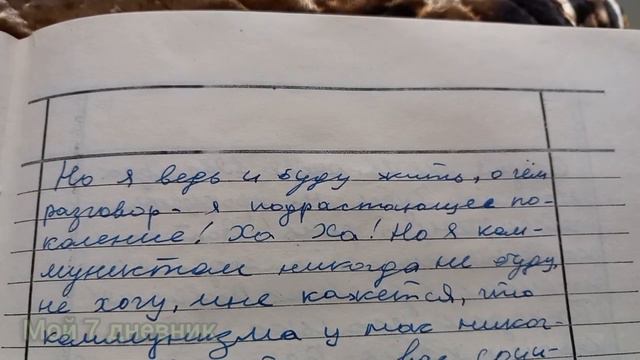 Но я ведь и буду жить, о чём
разговор - я подрастающее по-
коление! Ха Ха! Но я ком-
мунистом никогда не буду,
не хочу, мне кажется, что
коммунизма у нас никог-
Мой 7 дневник